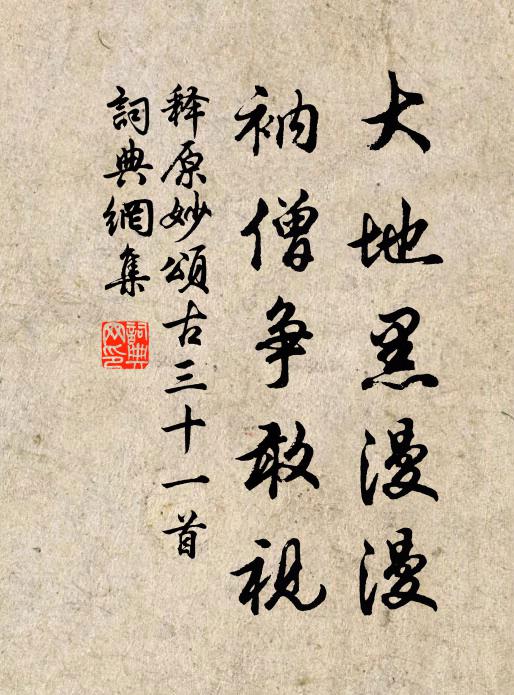 大地黑漫漫
衲僧争敢視
释原妙頌古三十一首
詞典網集
詞典網印